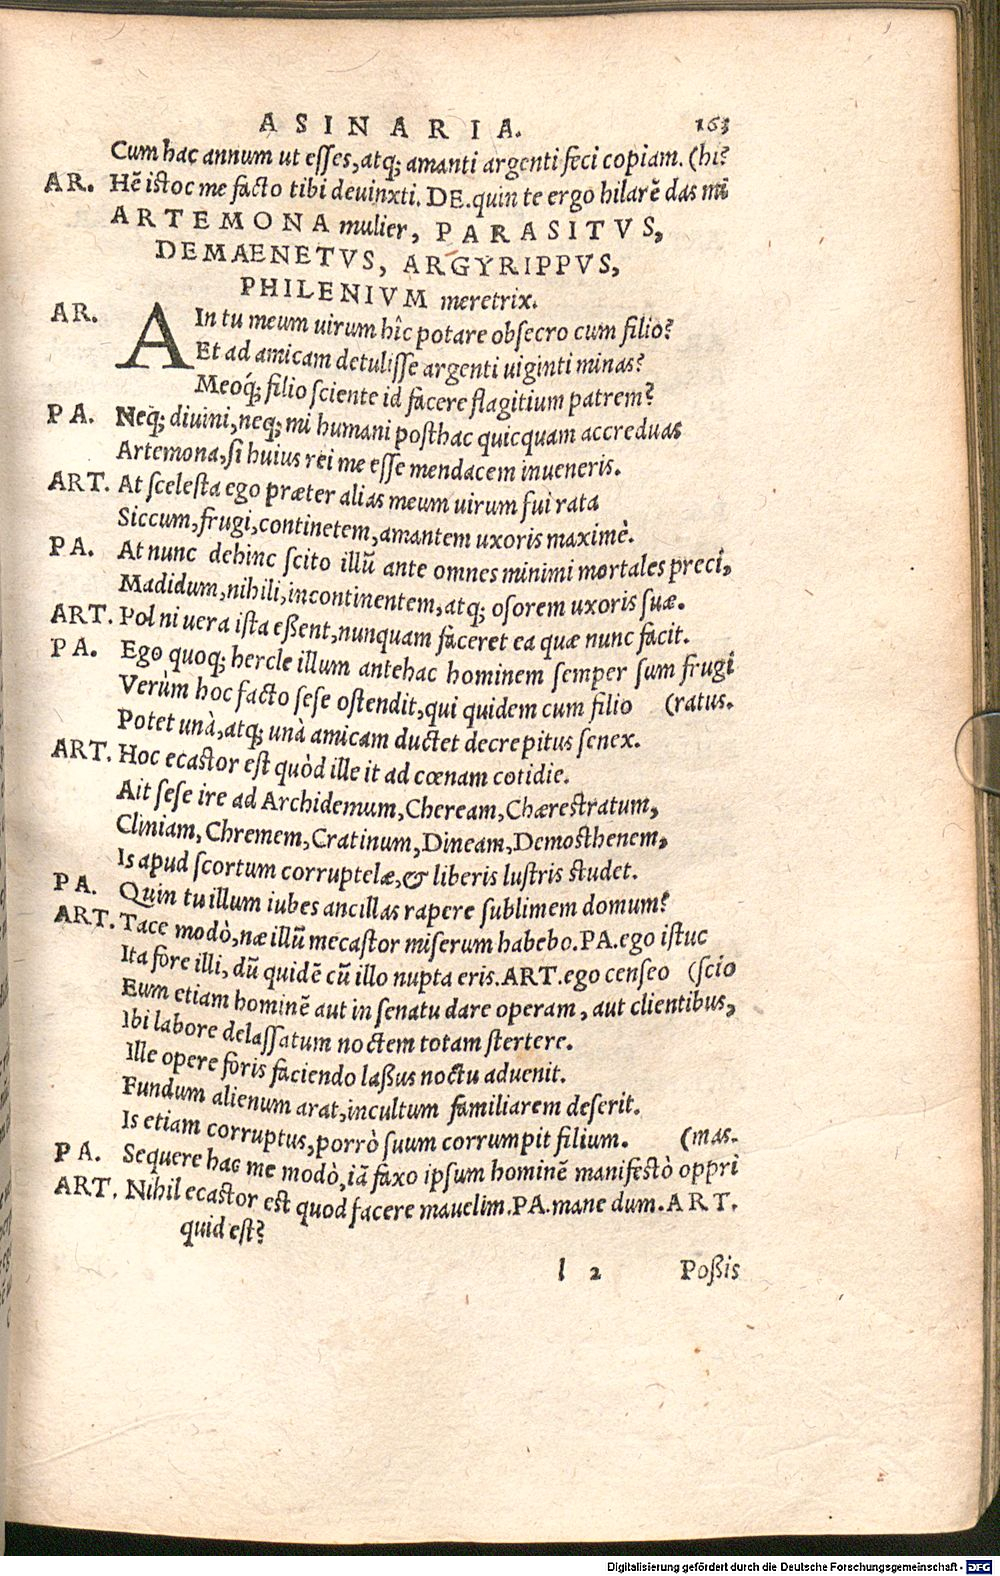 ASINARIA. 163
Cum hac annum ut esses, atq; amanti argenti feci copiam. (hi?
AR. Hē istoc me facto tibi deuinxti. DE. quin te ergo hilarē das mi
ARTEMONA mulier, PARASITVS,
DEMAENETVS, ARGYRIPPVS,
PHILENIVM meretrix.
AR. AIn tu meum uirum hîc potare obsecro cum filio?
Et ad amicam detulisse argenti uiginti minas?
Meoq́; filio sciente id facere flagitium patrem?
PA. Neq; diuini, neq; mi humani posthac quicquam accreduas
Artemona, si huius rei me esse mendacem inueneris.
ART. At scelesta ego præter alias meum uirum fui rata
Siccum, frugi, continetem, amantem uxoris maximè.
PA. At nunc dehinc scito illũ ante omnes minimi mortales preci,
Madidum, nihili, incontinentem, atq; osorem uxoris suæ.
ART. Pol ni uera ista eßent, nunquam faceret ea quæ nunc facit.
PA. Ego quoq; hercle illum antehac hominem semper sum frugi
Verùm hoc facto sese ostendit, qui quidem cum filio (ratus.
Potet unà, atq; unà amicam ductet decrepitus senex.
ART. Hoc ecastor est quòd ille it ad cœnam cotidie.
Ait sese ire ad Archidemum, Cheream, Chærestratum,
Cliniam, Chremem, Cratinum, Dineam, Demosthenem,
Is apud scortum corruptelæ, & liberis lustris studet.
PA. Quin tu illum iubes ancillas rapere sublimem domum?
ART. Tace modò, næ illũ mecastor miserum habebo. PA. ego istuc
Ita fore illi, dũ quidē cũ illo nupta eris. ART. ego censeo (scio
Eum etiam hominē aut in senatu dare operam, aut clientibus,
Ibi labore delassatum noctem totam stertere.
Ille opere foris faciendo laßus noctu aduenit.
Fundum alienum arat, incultum familiarem deserit.
Is etiam corruptus, porrò suum corrumpit filium. (mas.
PA. Sequere hac me modò, iã faxo ipsum hominē manifestò oppri
ART. Nihil ecastor est quod facere mauelim. PA. mane dum. ART.
quid est?
l 2 Poßis
Digitalisierung gefördert durch die Deutsche Forschungsgemeinschaft - DFG